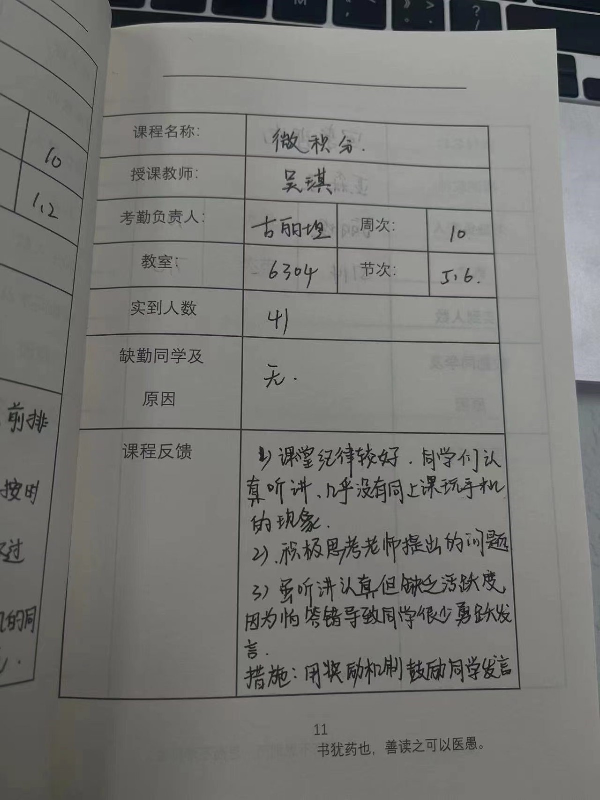 10
1,2
前排
按时
过
的同
课程名称: 微积分.
授课教师: 吴琪
考勤负责人: 古丽坦 周次: 10
教室: 6304 节次: 5,6.
实到人数 41
缺勤同学及
原因 无.
课程反馈
1) 课堂纪律较好. 同学们认
真听讲, 几乎没有同上课玩手机
的现象.
2). 积极思考老师提出的问题
3) 虽听讲认真但缺乏活跃度,
因为怕答错导致同学很少踊跃发
言.
措施: 用奖励机制鼓励同学发言
11
书犹药也，善读之可以医愚。